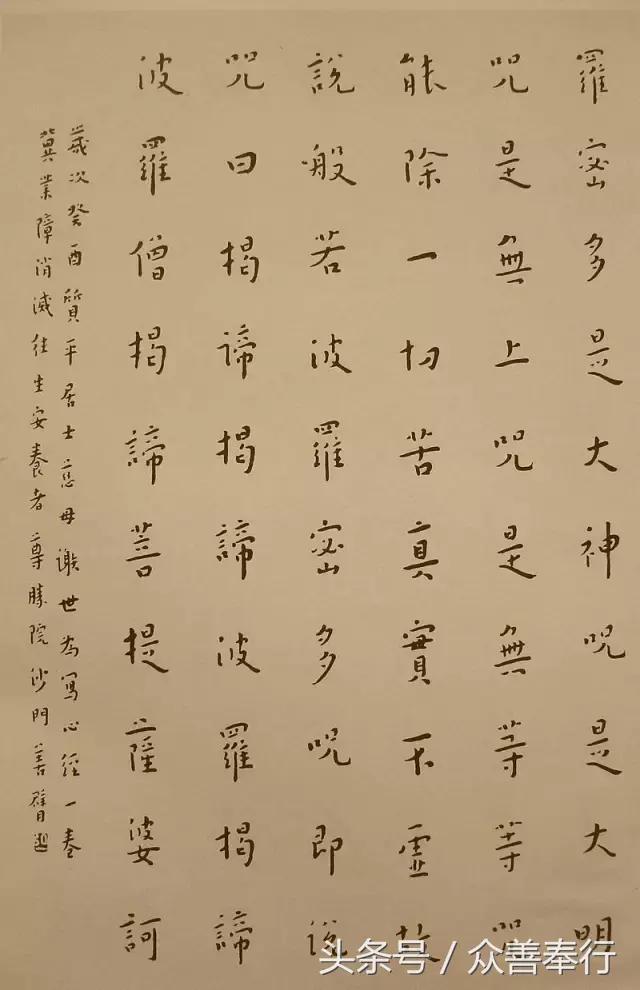 羅密多是大神咒是大明
咒是無上咒是無等等咒
能除一切苦真實不虛故
說般若波羅密多咒即說
咒曰揭諦揭諦波羅揭諦
波羅僧揭諦菩提薩婆訶
歲次癸酉質平居士慈母謝世為寫心經一卷
冀業障消滅往生安養者尊勝院沙門善臂
头条号 / 众善奉行